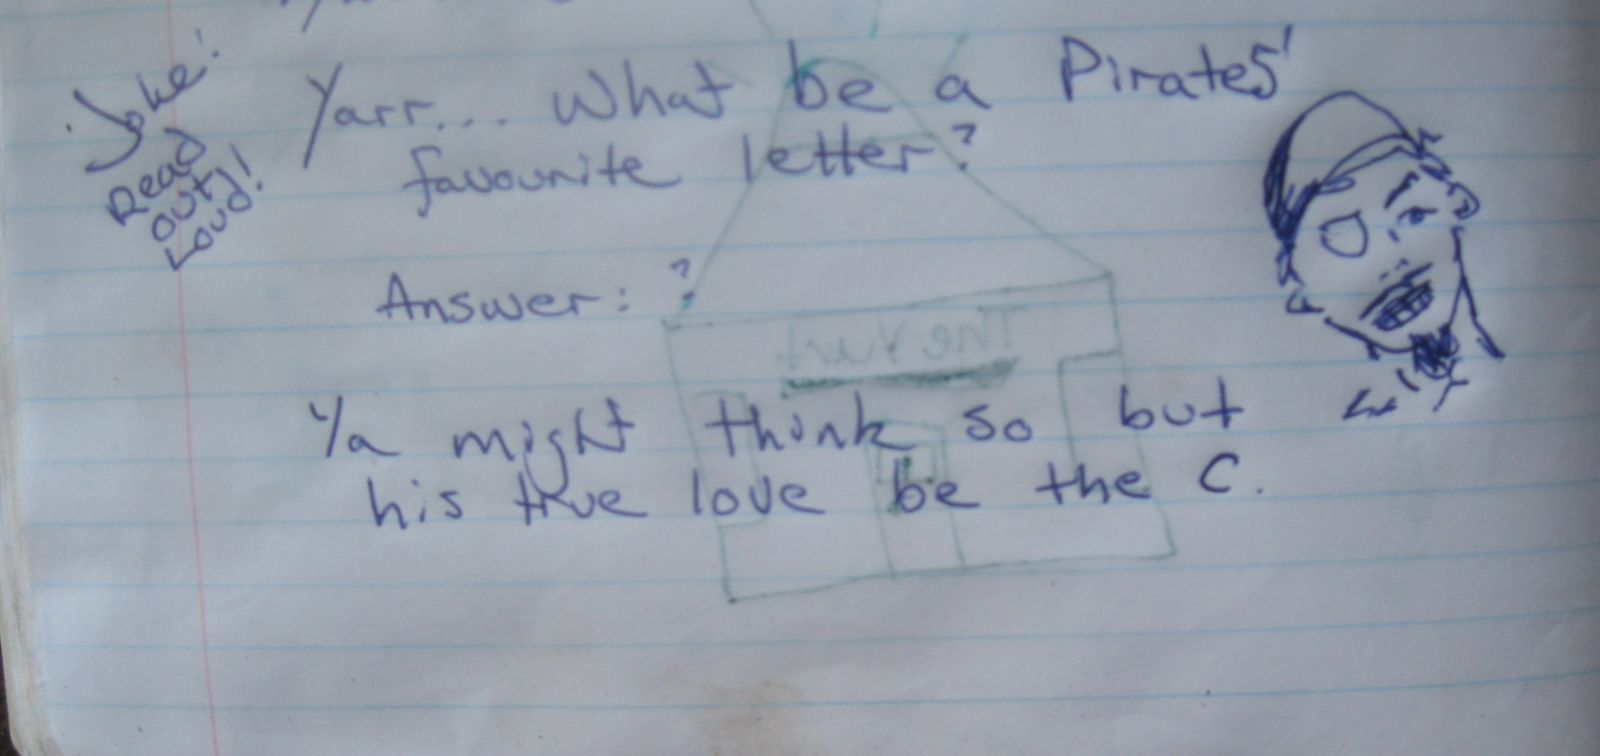 Joke!
Read
out
Loud!
Yarr... What be a Pirates'
favourite letter?
Answer: ?
Ya might think so but
his true love be the C.
The Yurt